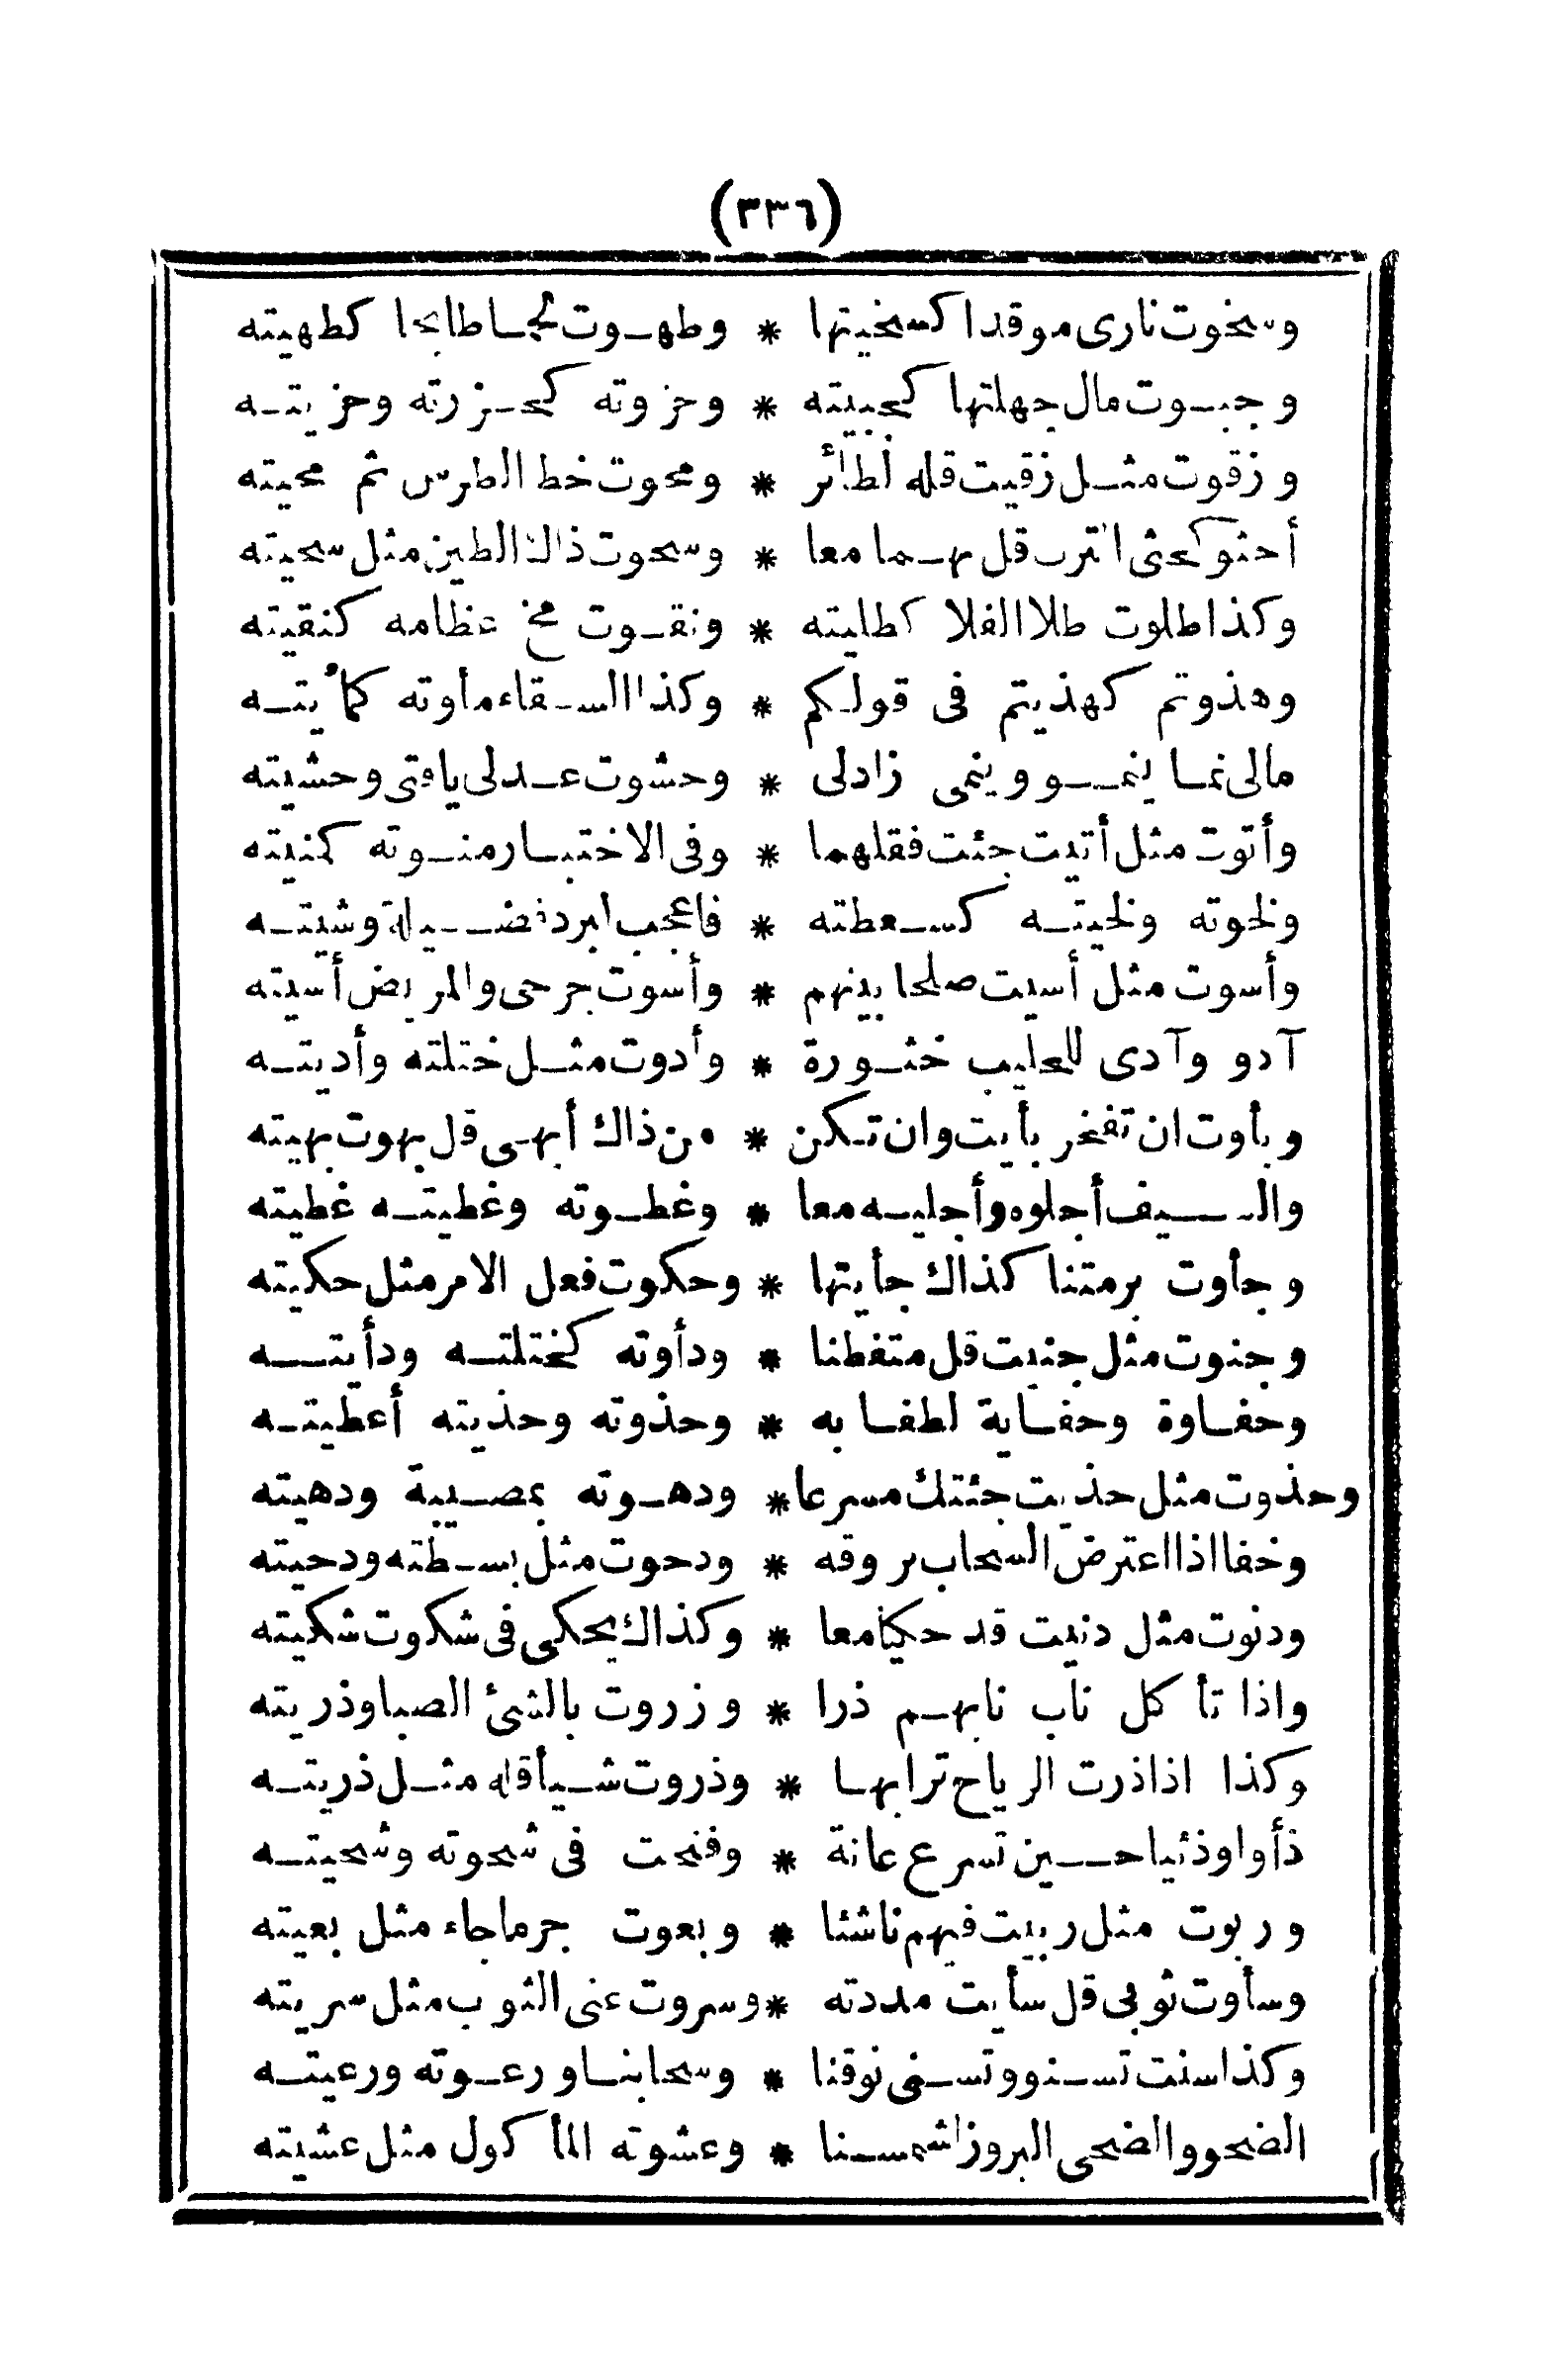 (٣٣٦)
وسخوت نارى موقدا كسخيتها * وطهوت لحما طابخا كطهيته
وجبوت مال جهلتها كجبيته * وحزوته كحزرته وحزيته
وزقوت مثل زقيت قله لطائر * ومحوت خط الطرس ثم محيته
أحثو كحثى الترب قل بهما معا * وسحوت ذاك الطين مثل سحيته
وكذا طلوت طلا الفلا كطليته * ونقوت مخ عظامه كنقيته
وهذوتم كهذيتم فى قولكم * وكذا السقاء مأوته كمأيته
مالى نما ينمو وينمى زادلى * وحشوت عدلى يافتى وحشيته
وأتوت مثل أتيت جئت فقلهما * وفى الاختبار منوته كمنيته
ولخوته ولخيته كسعطته * فاعجب لبرد فضيلة وشيته
وأسوت مثل أسيت صلحا بينهم * وأسوت جرحى والمريض أسيته
آدو وآدى للحليب خثورة * وأدوت مثل ختلته وأديته
وبأوت ان تفخر بأيت وان تكن * من ذاك أبهى قل بهوت بهيته
والسيف أجلوه وأجليه معا * وغطوته وغطيته غطيته
وجأوت برمتنا كذاك جأيتها * وحكوت فعل الامر مثل حكيته
وجنوت مثل جنيت قل متفطنا * ودأوته كختلته ودأيته
وحفاوة وحفاية لطفا به * وحذوته وحذيته أعطيته
وحذوت مثل حذيت جئتك مسرعا * ودهوته بمصيبة ودهيته
وخفا اذا اعترض السحاب بروقه * ودحوت مثل بسطته ودحيته
ودنوت مثل دنيت قد حكيا معا * وكذاك يحكى فى شكوت شكيته
واذا تأكل ناب نابهم ذرا * وزروت بالشئ الصبا وذريته
وكذا اذا ذرت الرياح ترابها * وذروت شيأ قله مثل ذريته
ذأوا وذئيا حين تسرع عانة * وفتحت فى شحوته وشحيته
وربوت مثل ربيت فيهم ناشئا * وبعوت جرما جاء مثل بعيته
وسأوت ثوبى قل سأيت مددته * وسروت عنى الثوب مثل سريته
وكذا سنت تسنو وتسنى نوقنا * وسحابنا ورعوته ورعيته
الضحو والضحى البروز لشمسنا * وعشوته المأكول مثل عشيته